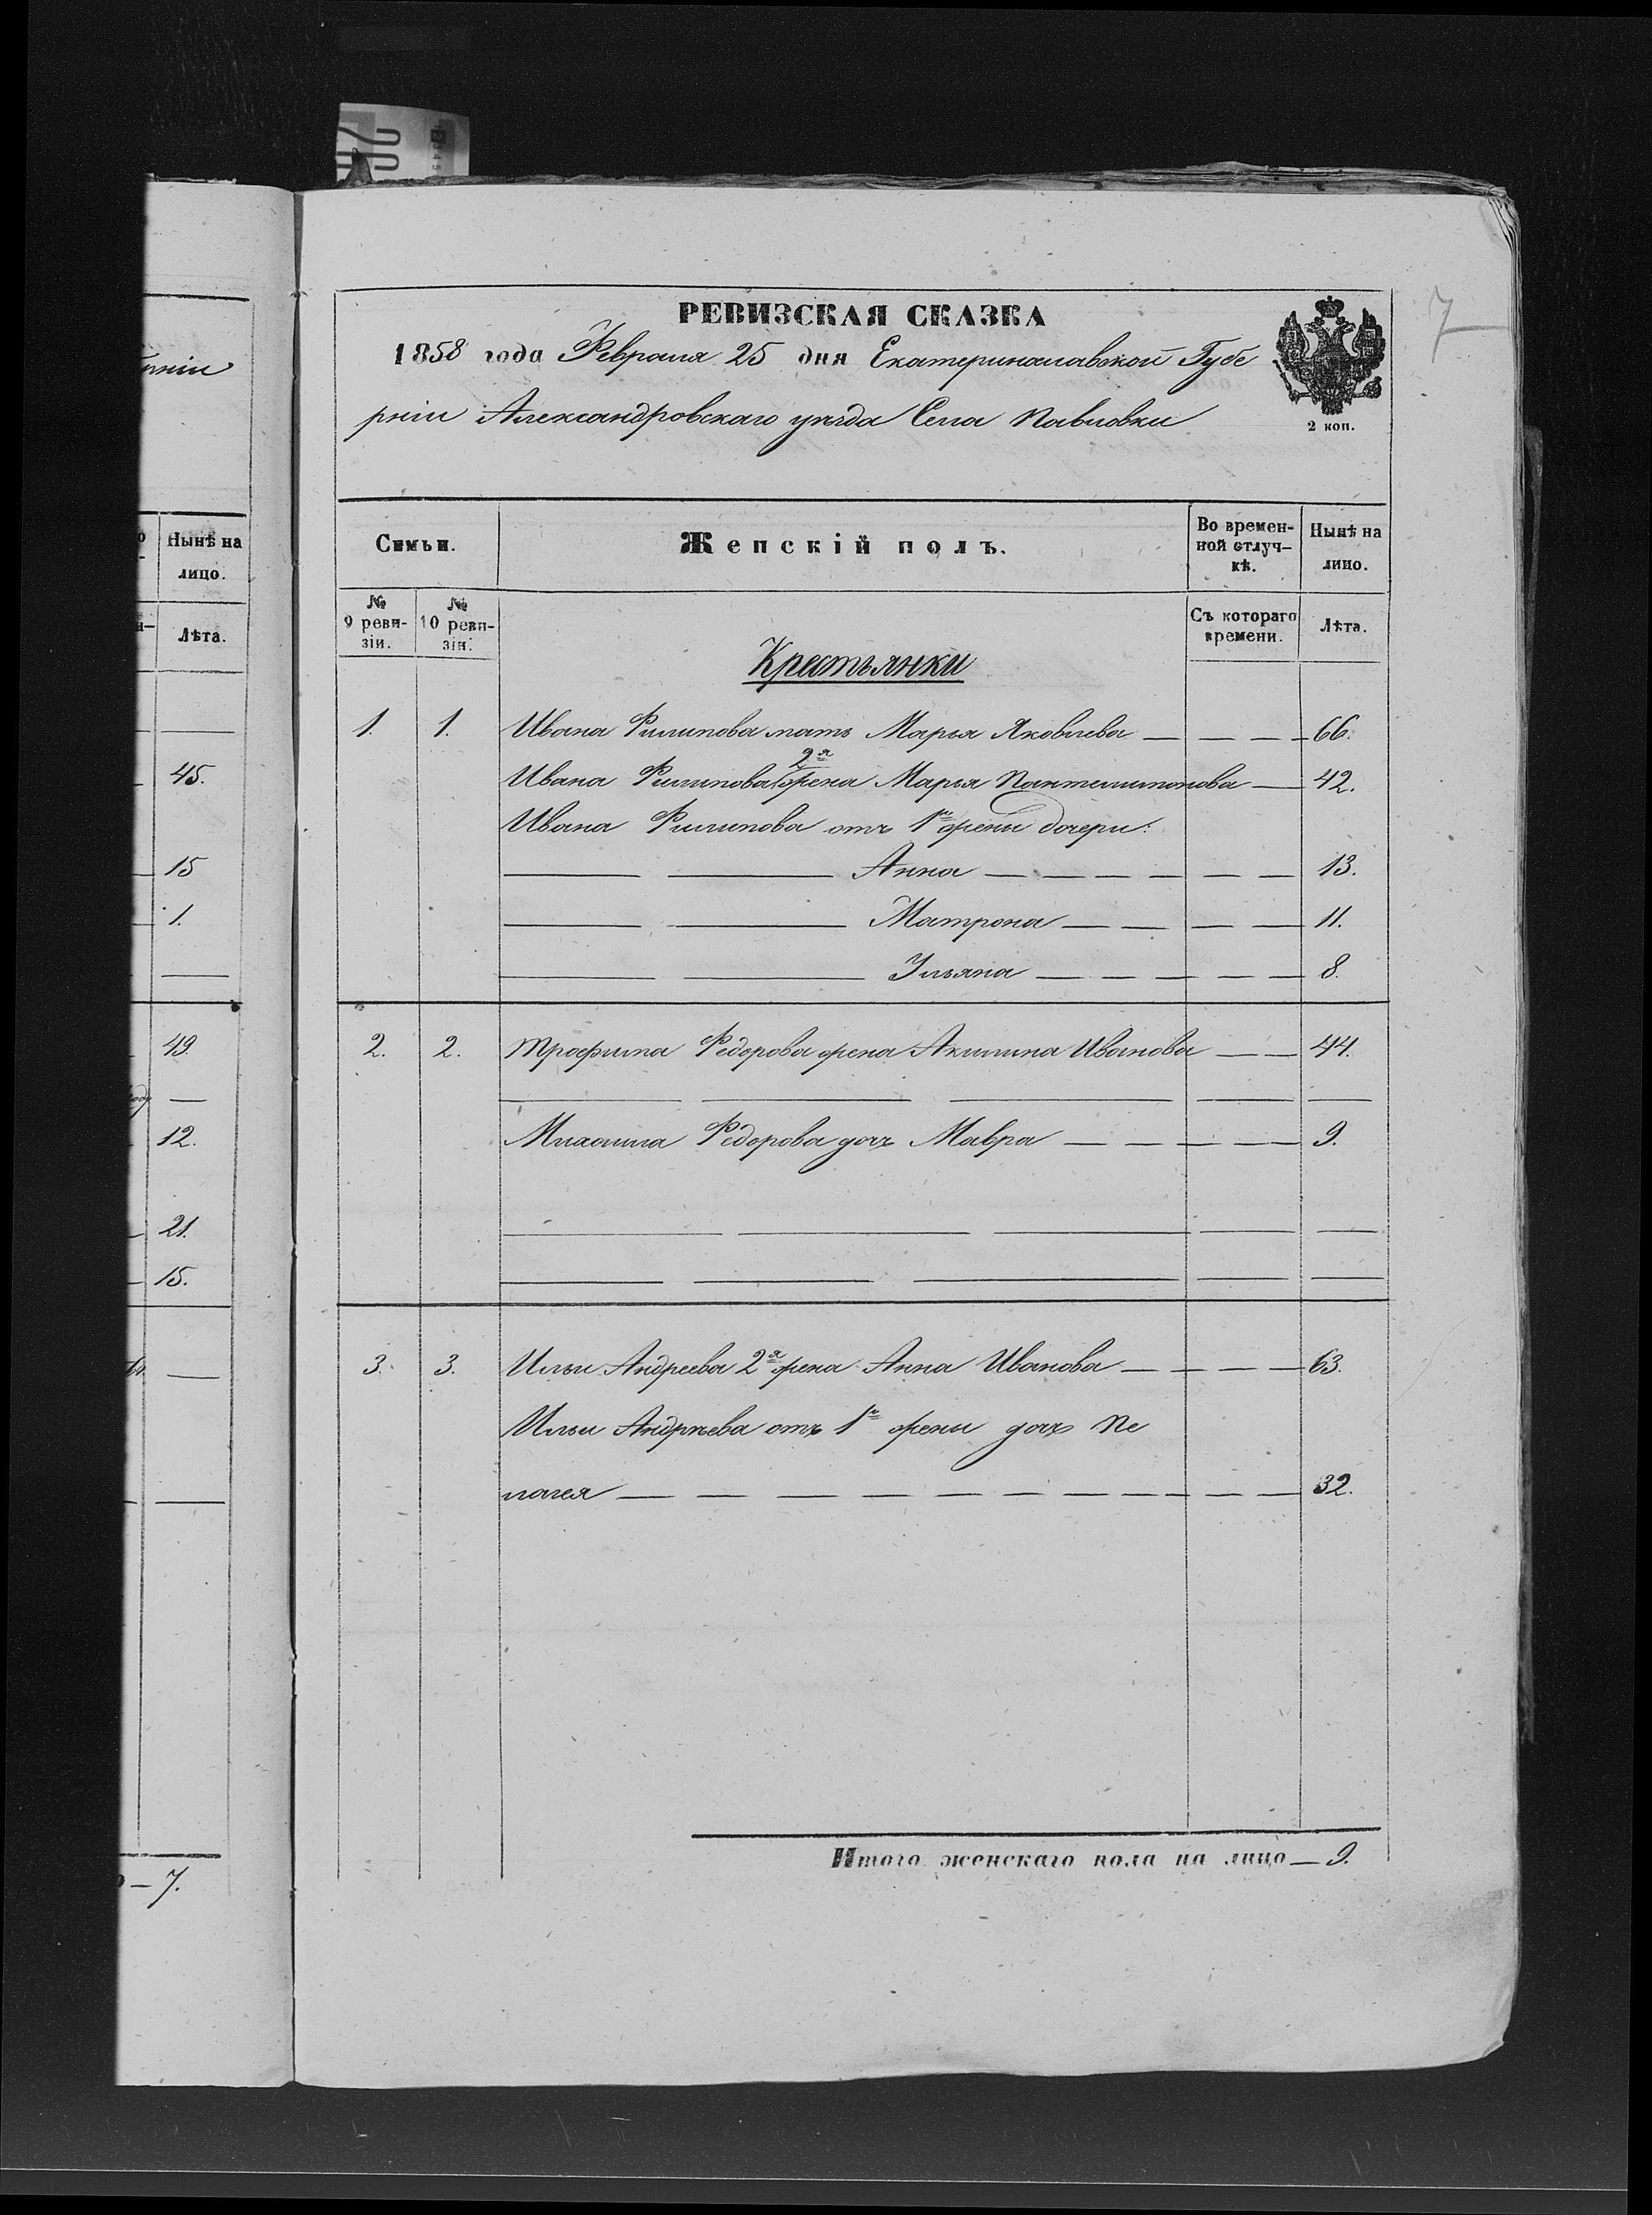 РЕВИЗСКАЯ СКАЗКА
1858 года Февраля 25 дня Екатеринославской Губе
рніи Александровскаго уѣзда Села Павловки
2 коп.
7
Семьи.
Женскій полъ.
Во времен-
ной отлуч-
кѣ.
Нынѣ на
лицо.
№
9 реви-
зіи.
№
10 реви-
зіи.
Съ котораго
времени.
Лѣта.
Крестьянки
1. 1. Ивана Филипова мать Марья Яковлева — — — — 66.
2я
Ивана Филипова жена Марья Пантелимонова — 42.
Ивана Филипова отъ 1й жены дочери:
Анна — — — — — — 13.
Матрона — — — — 11.
Ульяна — — — — — 8.
2. 2. Трофима Федорова жена Акилина Иванова — — 44.
Михаила Федорова дочь Мавра — — — — 9.
3. 3. Ильи Андреева 2я жена Анна Иванова — — — — 63.
Ильи Андрѣева отъ 1й жены дочь Пе
лагея — — — — — — — — — — 32.
Итого женскаго пола на лицо — 9.
Нынѣ на
лицо.
Лѣта.
45.
15
1.
49.
12.
21.
15.
— 7.